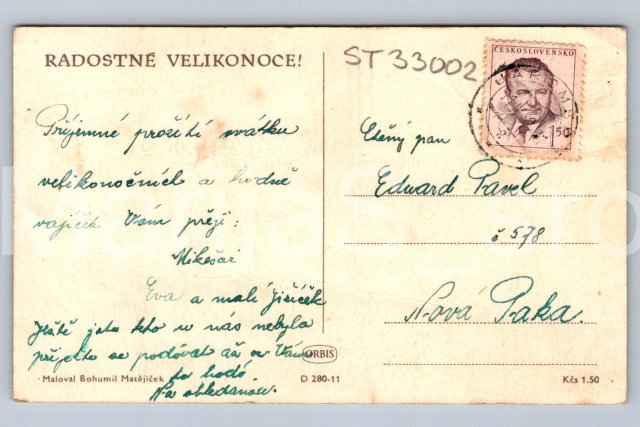 RADOSTNÉ VELIKONOCE!
ST 33002
ČESKOSLOVENSKO
1.50
Příjemné prožití svátku
velikonočních a hodně
vajíček Vám přejí:
Mikešovi
Eva a malí Jiříček
Ještě jste teto u nás nebyla
přijeďte se podívat až se Vám
to hodí
Na shledanou.
Ctěný pan
Eduard Pavel
č 578
Nová Paka.
ORBIS
Maloval Bohumil Matějíček
D 280-11
Kčs 1.50